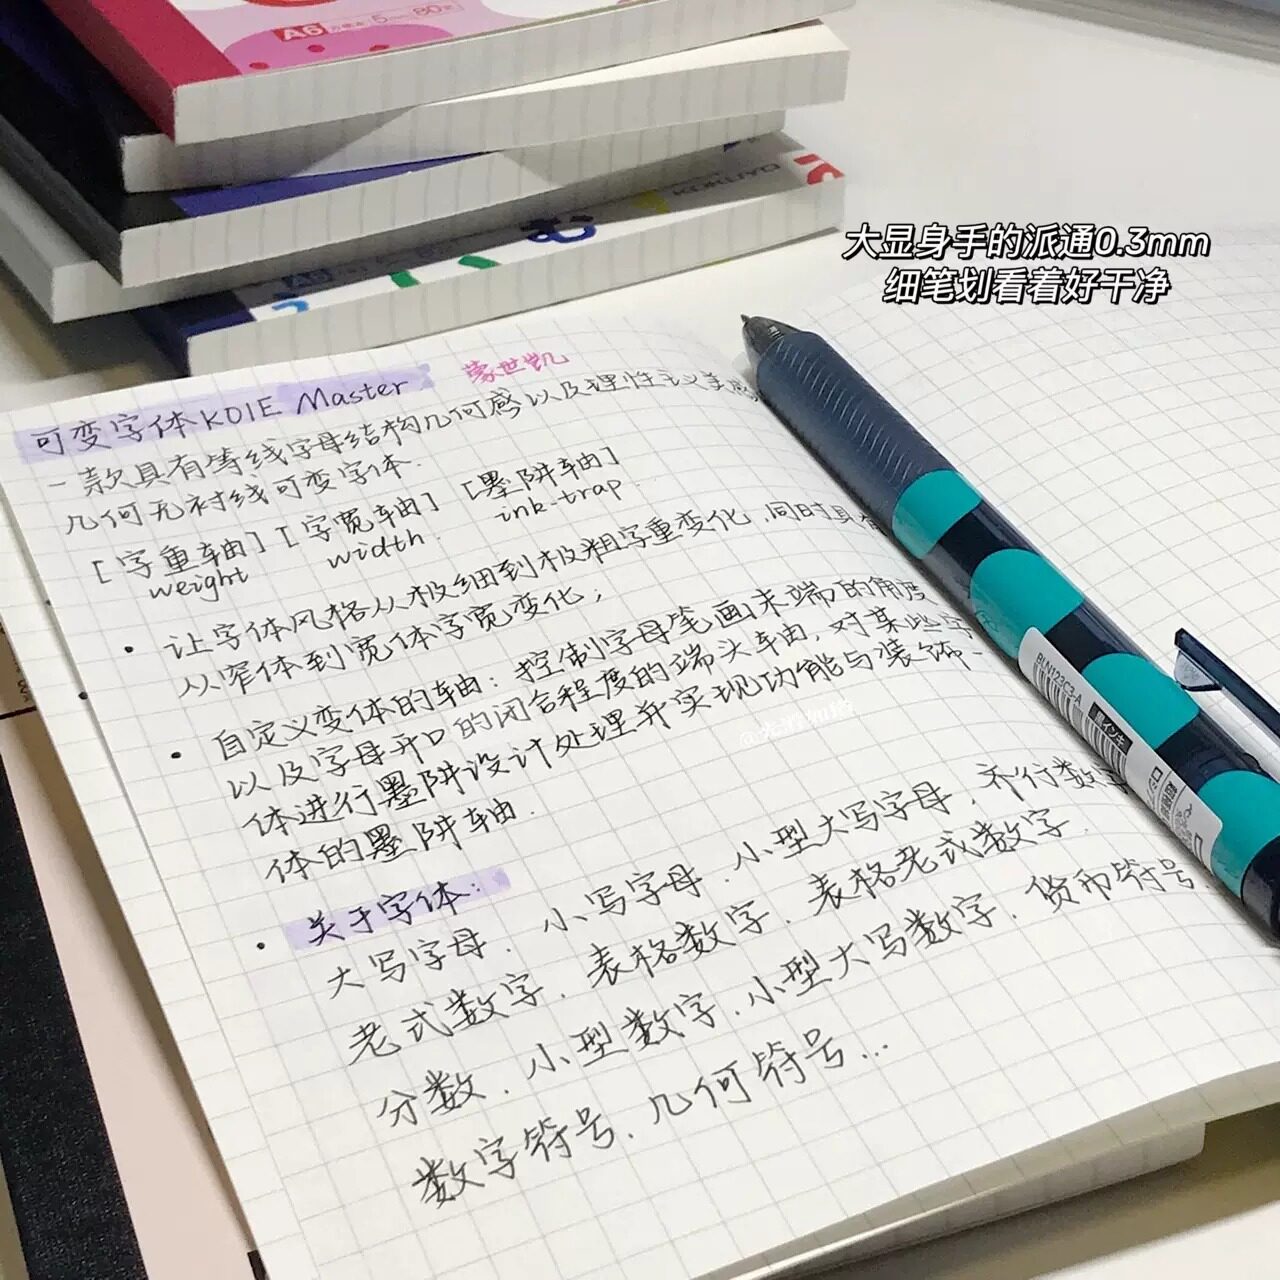 A6 5mm 80
KOKUYO
大显身手的派通0.3mm
细笔划看着好干净
可变字体KOIE Master 蒙世凯
一款具有等线字母结构几何感以及理性主义美感
几何无衬线可变字体.
[字重轴][字宽轴][墨阱轴]
weight width. ink-trap.
• 让字体风格从极细到极粗字重变化,同时具有
从窄体到宽体字宽变化;
• 自定义变体的轴:控制字母笔画末端的角度
以及字母开口的闭合程度的端头轴,对某些字
体进行墨阱设计处理并实现功能与装饰一
体的墨阱轴.
• 关于字体:
大写字母、小写字母、小型大写字母、齐行数字
老式数字、表格数字、表格老式数字、
分数、小型数字、小型大写数字、货币符号、
数字符号、几何符号...
BLN123C3-A
黒インキ